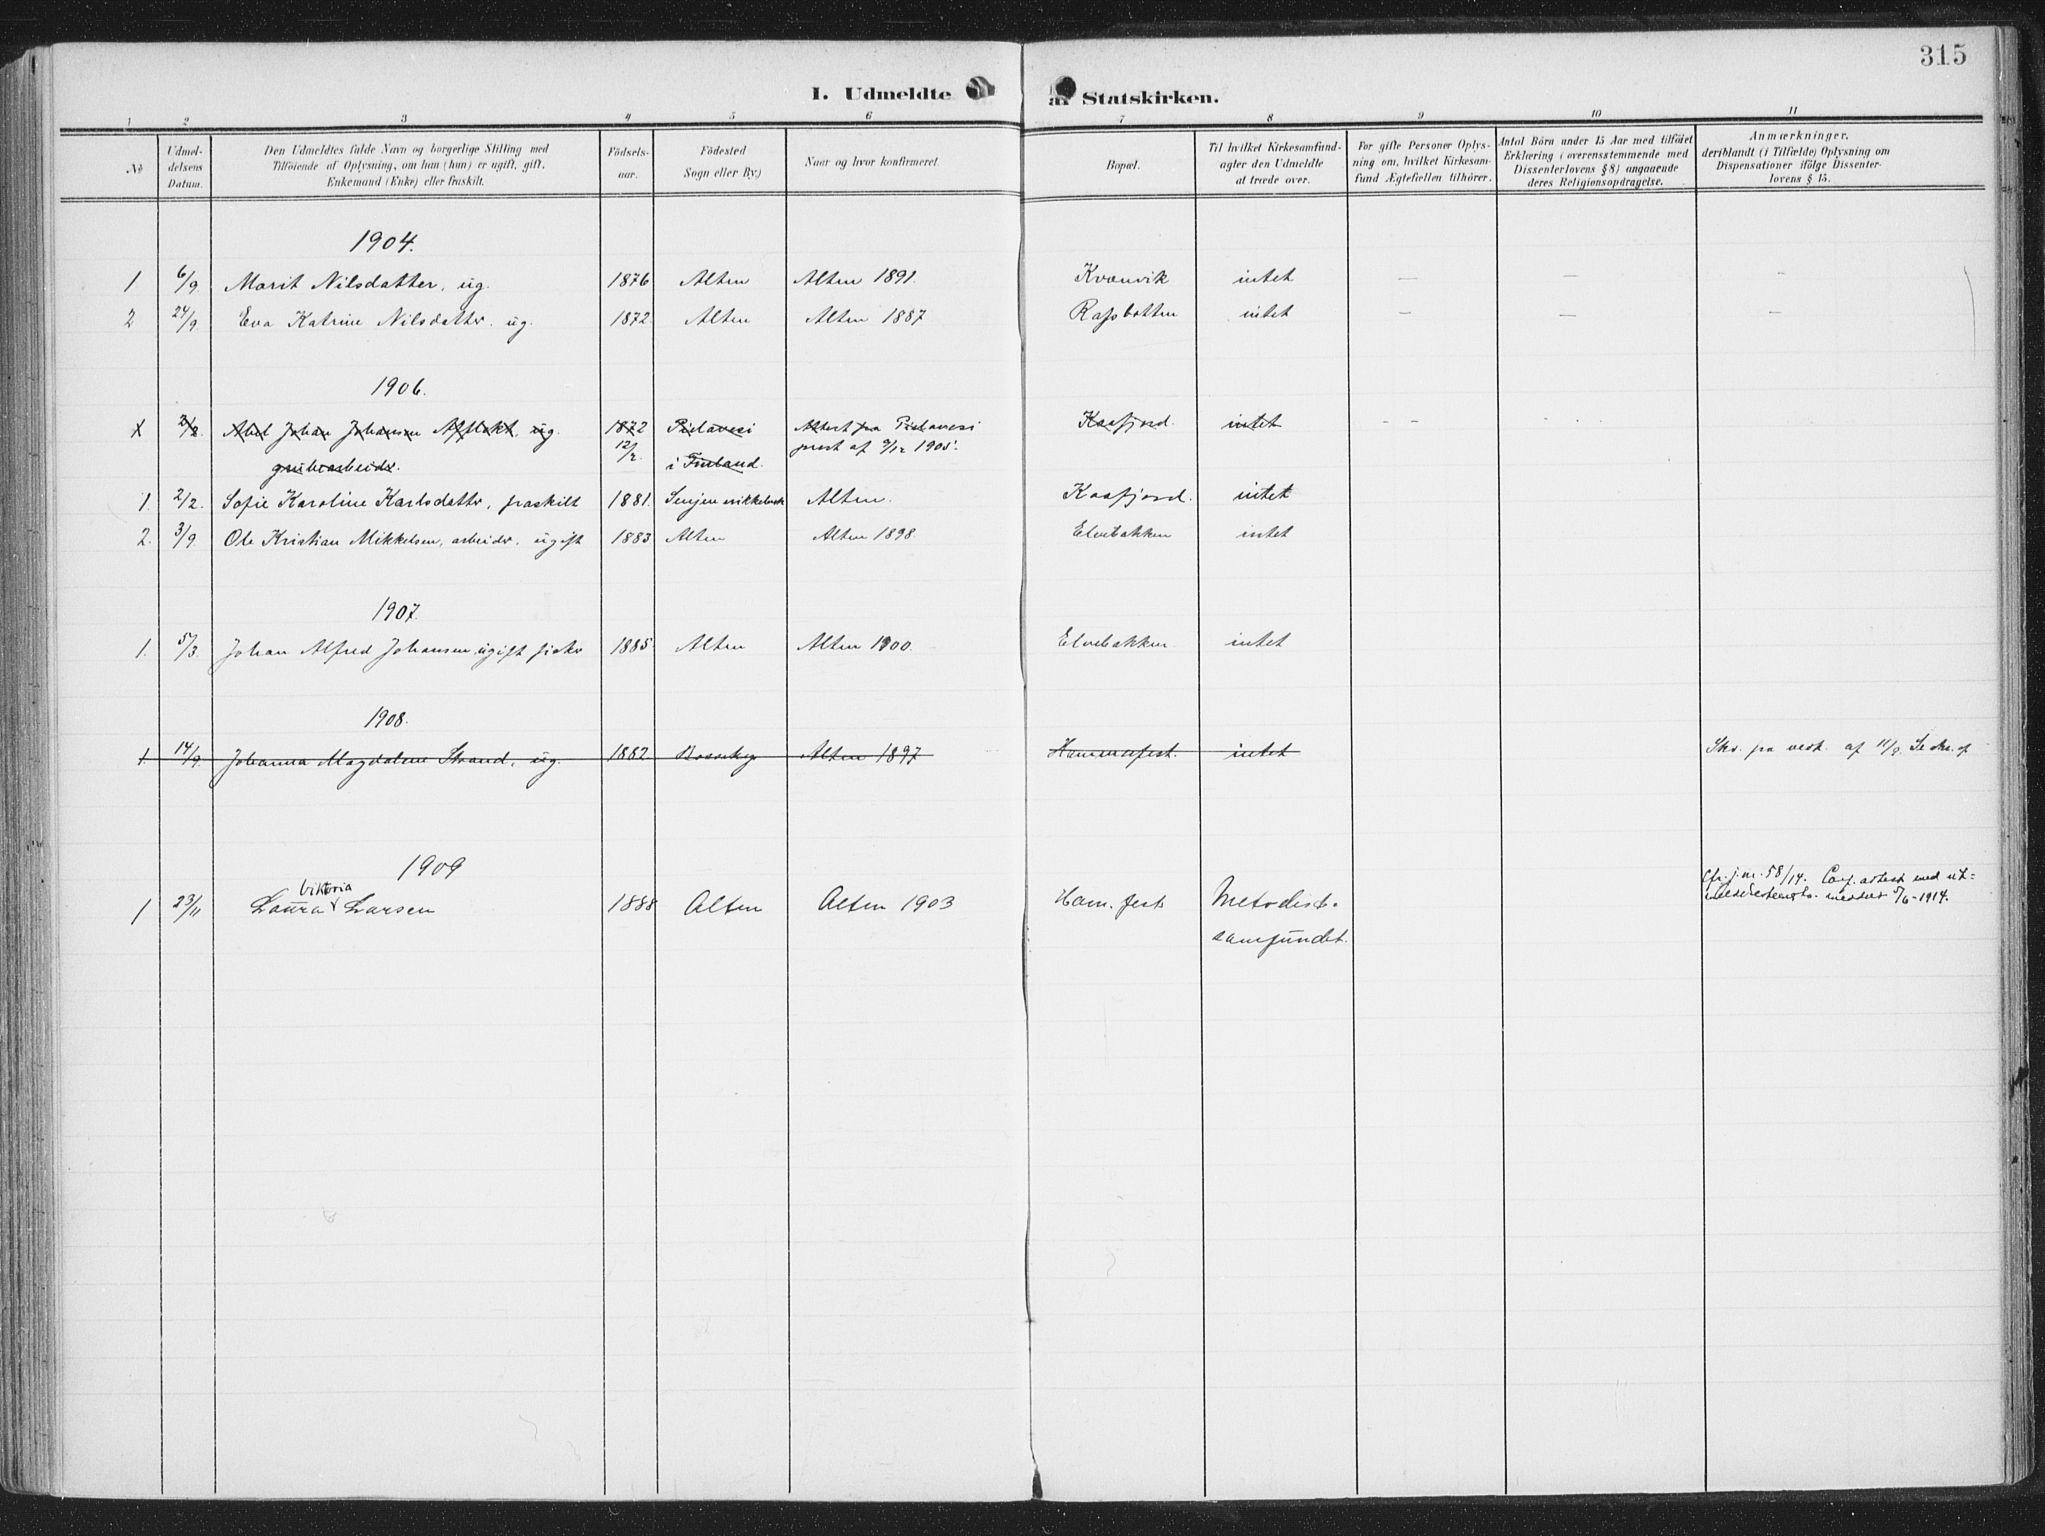 315
I. Udmeldte af Statskirken.
1 2 3 4 5 6 7 8 9 10 11
№
Udmel-
delsens
Datum.
Den Udmeldtes fulde Navn og borgerlige Stilling med
Tilföiende af Oplysning, om han (hun) er ugift, gift,
Enkemand (Enke) eller fraskilt.
Födsels-
aar.
Födested
Sogn eller By.)
Naar og hvor konfirmeret.
Bopæl.
Til hvilket Kirkesamfund-
agter den Udmeldte
at træde over.
For gifte Personer Oplys-
ning om, hvilket Kirkesam-
fund Ægtefællen tilhörer.
Antal Börn under 15 Aar med tilföiet
Erklæring i overensstemmende med
Dissenterlovens § 8) angaaende
deres Religionsopdragelse.
Anmærkninger.
deriblandt (i Tilfælde) Oplysning om
Dispensationer ifölge Dissenter-
lovens § 15.
1904.
1 6/9 Marit Nilsdatter, ug. 1876 Alten Alten 1891. Kvænvik intet — — -
2 24/9 Eva Katrine Nilsdatter. ug. 1872. Alten Alten 1887 Rafsbotten intet — — —
1906.
2/2 Abel Johan Johansen ug. 1872 Pielavesi Attest fra Pielavesi Kaafjord. intet - -
grubearbeider. 12/2. i Finland. prest af 9/12 1905.
1. 2/2. Sofie Karoline Karlsdatter, fraskilt 1881. Senjen Alten. Kaafjord. intet
2. 3/9 Ole Kristian Mikkelsen, arbeider. ugift 1883 Alten Alten 1898. Elvebakken intet
1907.
1. 5/3 Johan Alfred Johansen, ugift fisker 1885 Alten Alten 1900. Elvebakken intet
1908.
1. 14/9 Johanna Magdalene Strand, ug. 1882 Bossekop Alten 1897 Hammerfest. intet Skr. fra vedk. af 11/9.
1909
Viktoria
1 23/11 Laura Larsen 1888 Alten Alten 1903 Ham. fest Metodist-
samfundet.
Cfr. j. nr. 58/14. Conf. attest med ut-
meddelt 5/6-1914.